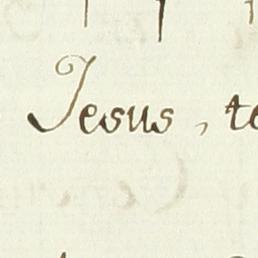 Jesus, te